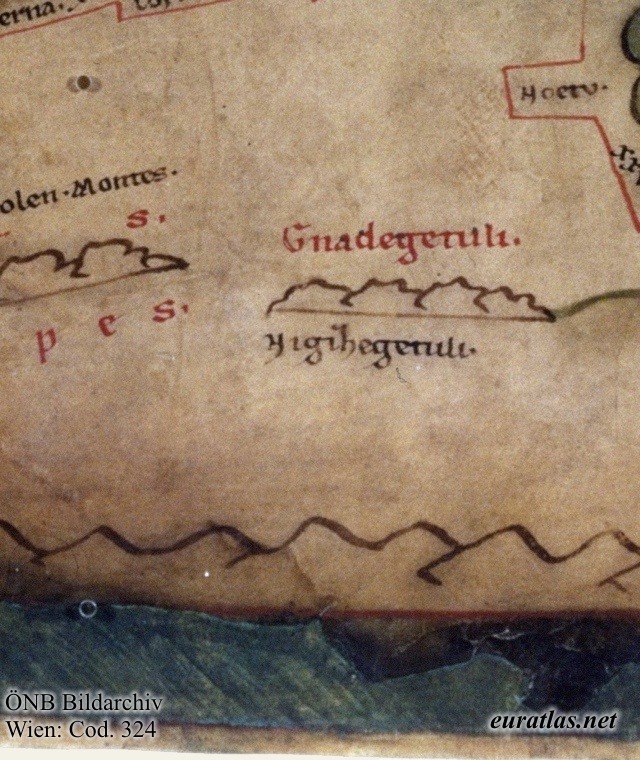 erna.
Hoetv.
olen·Montes.
s.
Gnadegetuli.
p e s.
Nigihegetuli.
ÖNB Bildarchiv
Wien: Cod. 324
euratlas.net